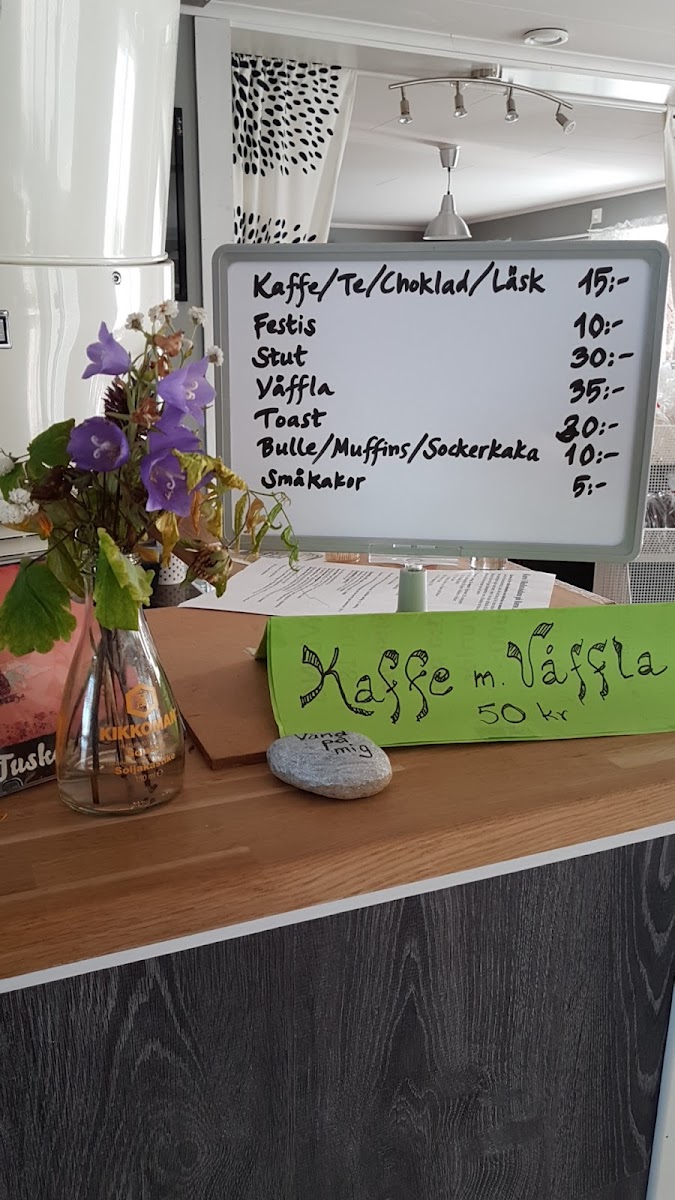 Kaffe/Te/Choklad/Läsk 15:-
Festis 10:-
Stut 30:-
Våffla 35:-
Toast 30:-
Bulle/Muffins/Sockerkaka 10:-
Småkakor 5:-
Kaffe m. Våffla
50 kr
Vänd
på
mig
KIKKOMAN
Tusk